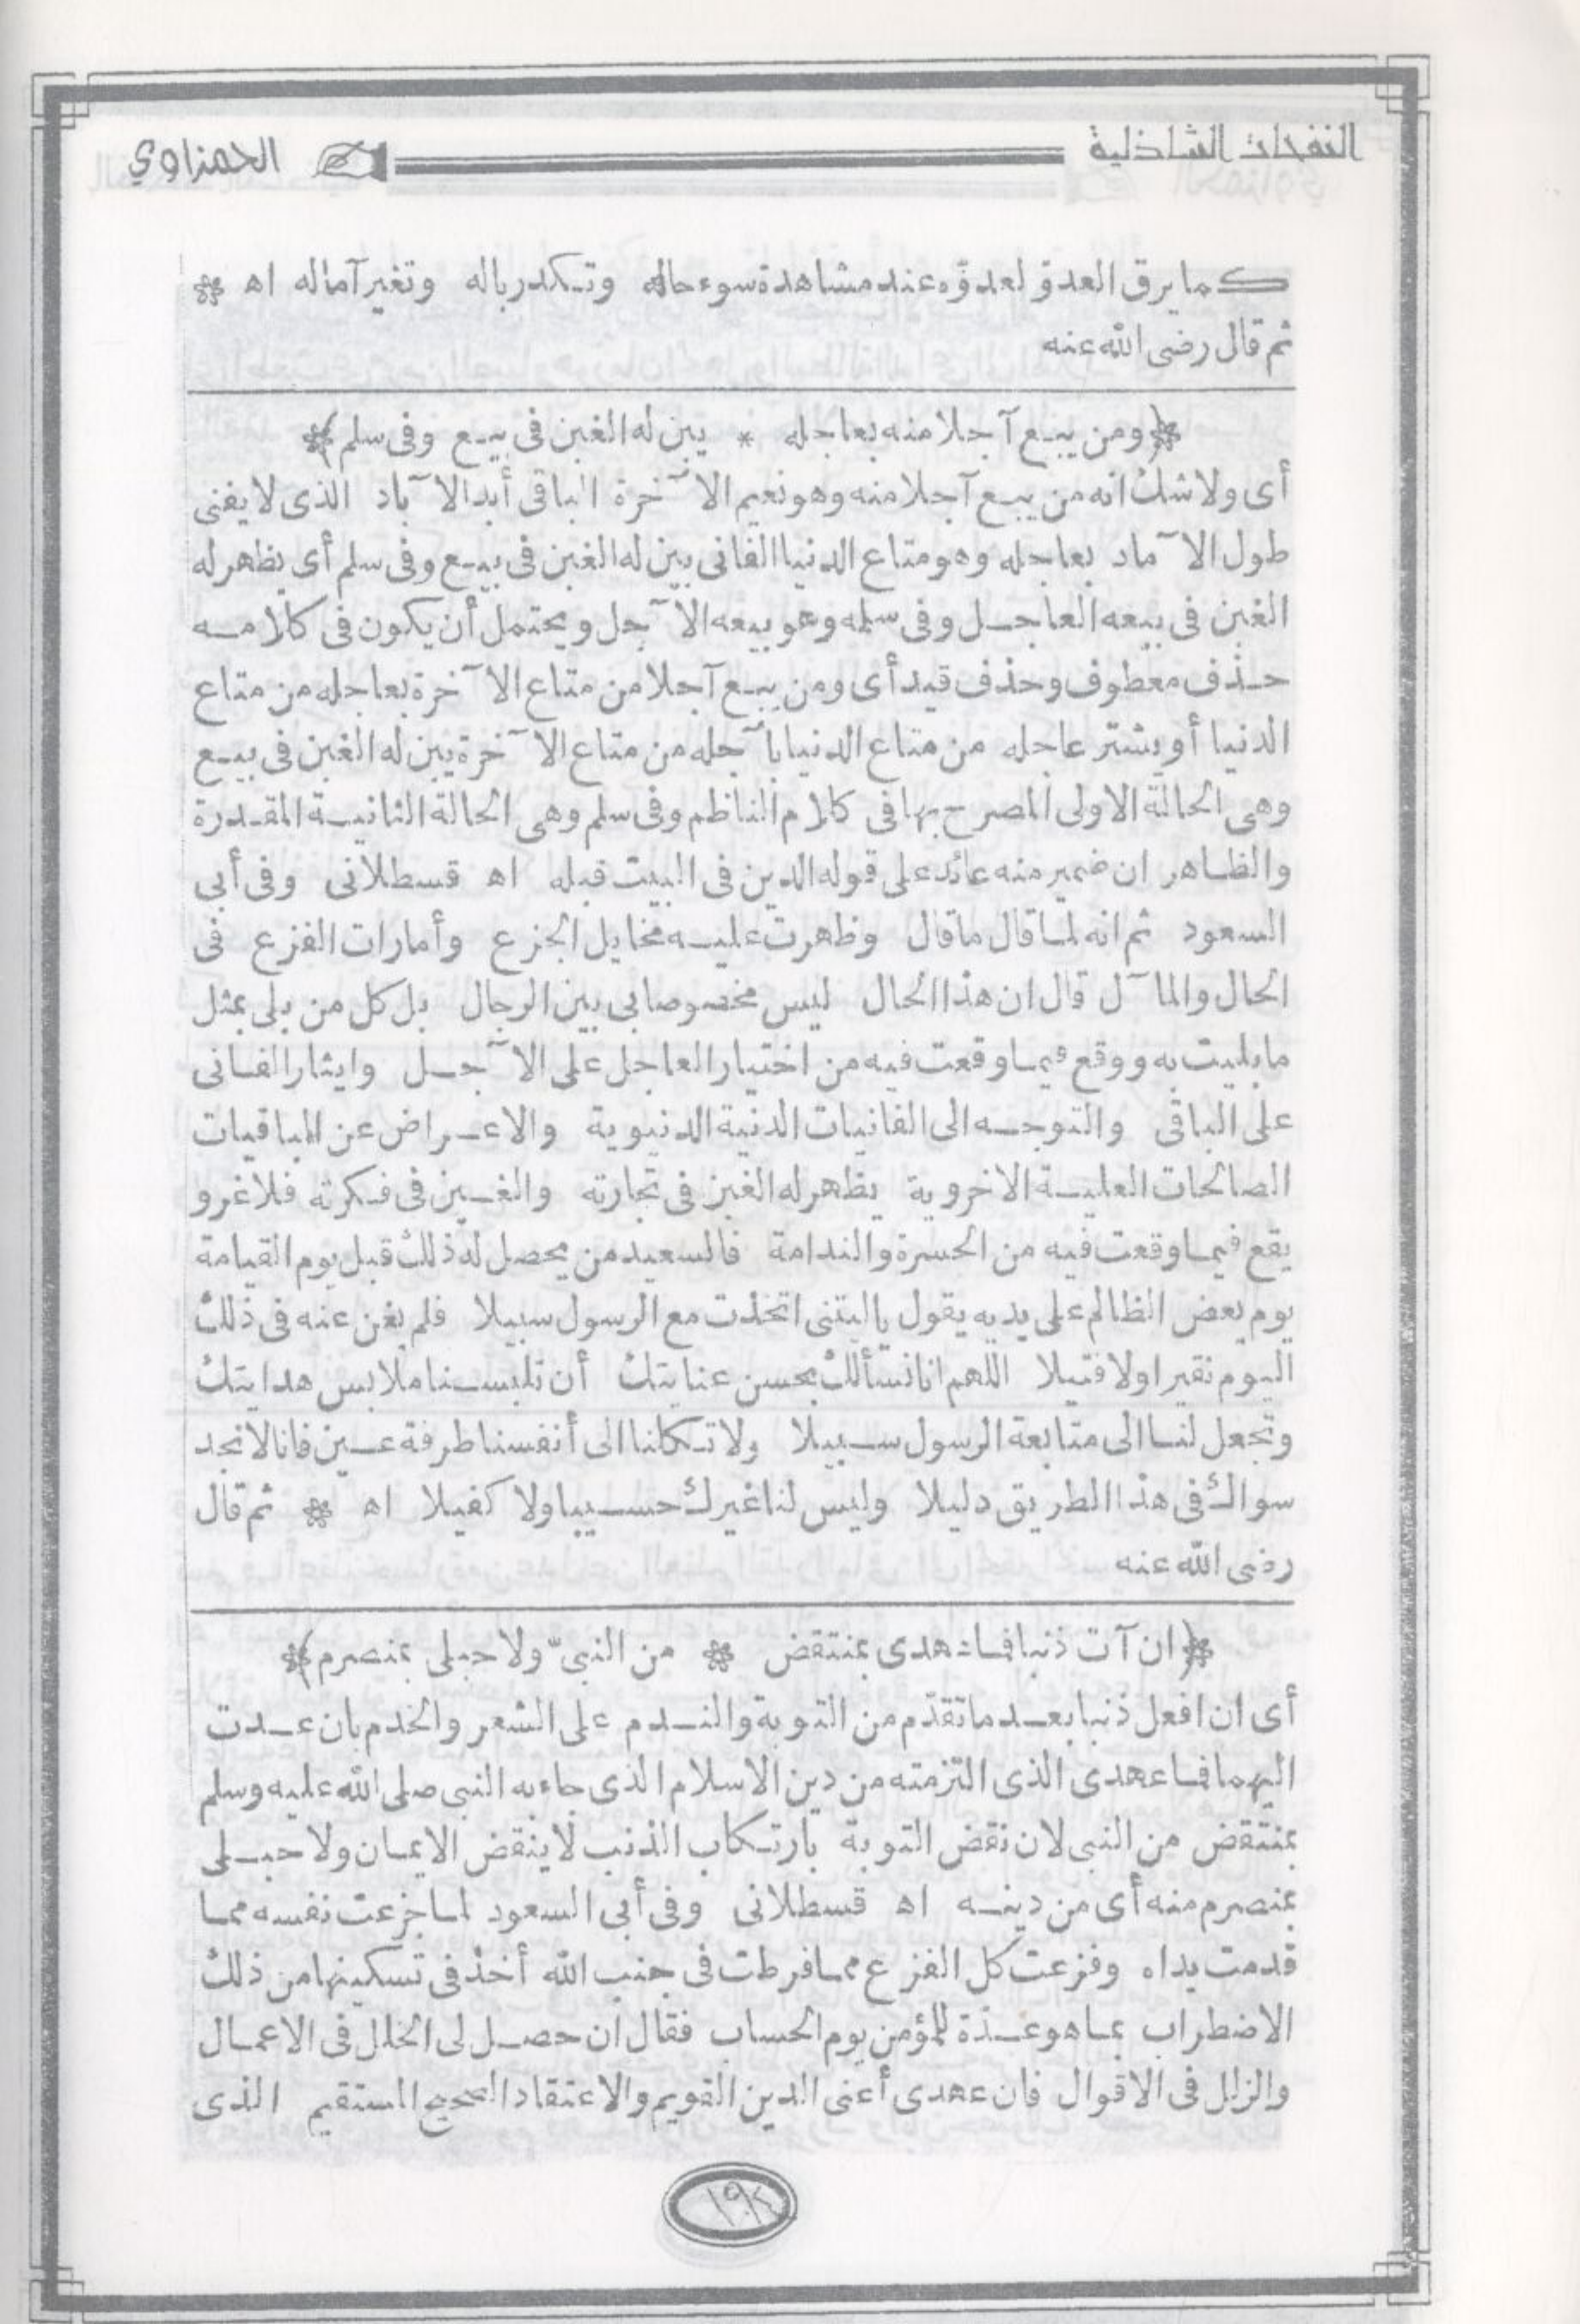 النفحات الشاذلية
الحمزاوي
كما يرق العدوّ لعدوّه عند مشاهدة سوء حاله وتكدر باله وتغير آماله اه *
ثم قال رضى الله عنه
﴿ومن يبع آجلا منه بعاجله * يبن له الغبن فى بيع وفى سلم﴾
أى ولا شك انه من يبع آجلا منه وهو نعيم الآخرة الباقى أبد الآباد الذى لا يفنى
طول الآماد بعاجله وهو متاع الدنيا الفانى يبن له الغبن فى بيع وفى سلم أى يظهر له
الغبن فى بيعه العاجل وفى سلمه وهو بيعه الآجل ويحتمل أن يكون فى كلامه
حذف معطوف وحذف قيد أى ومن يبع آجلا من متاع الآخرة بعاجله من متاع
الدنيا أو يشتر عاجله من متاع الدنيا بآجله من متاع الآخرة يبن له الغبن فى بيع
وهى الحالة الاولى المصرح بها فى كلام الناظم وفى سلم وهى الحالة الثانية المقدرة
والظاهر ان ضمير منه عائد على قوله الدين فى البيت قبله اه قسطلانى وفى أبى
السعود ثم انه لما قال ما قال وظهرت عليه مخايل الجزع وأمارات الفزع فى
الحال والمآل قال ان هذا الحال ليس مخصوصا بى بين الرجال بل كل من بلى بمثل
ما بليت به ووقع فيما وقعت فيه من اختيار العاجل على الآجل وايثار الفانى
على الباقى والتوجه الى الفانيات الدنية الدنيوية والاعراض عن الباقيات
الصالحات العلية الاخروية يظهر له الغبن فى تجارته والغبن فى فكرته فلا غرو
يقع فيما وقعت فيه من الحسرة والندامة فالسعيد من يحصل له ذلك قبل يوم القيامة
يوم يعض الظالم على يديه يقول يا ليتنى اتخذت مع الرسول سبيلا فلم يغن عنه فى ذلك
اليوم نقيرا ولا فتيلا اللهم انا نسألك بحسن عنايتك أن تلبسنا ملابس هدايتك
وتجعل لنا الى متابعة الرسول سبيلا ولا تكلنا الى أنفسنا طرفة عين فانا لا نجد
سواك فى هذا الطريق دليلا وليس لنا غيرك حسيبا ولا كفيلا اه * ثم قال
رضى الله عنه
﴿ان آت ذنبا فما عهدى بمنتقض * من النبىّ ولا حبلى بمنصرم﴾
أى ان افعل ذنبا بعد ما تقدّم من التوبة والندم على الشعر والخدم بان عدت
اليهما فما عهدى الذى التزمته من دين الاسلام الذى جاء به النبى صلى الله عليه وسلم
بمنتقض من النبى لان نقض التوبة بارتكاب الذنب لا ينقض الايمان ولا حبلى
بمنصرم منه أى من دينه اه قسطلانى وفى أبى السعود لما جزعت نفسه مما
قدمت يداه وفزعت كل الفزع مما فرطت فى جنب الله أخذ فى تسكينها من ذلك
الاضطراب بما هو عدّة للمؤمن يوم الحساب فقال ان حصل لى الخلل فى الاعمال
والزلل فى الاقوال فان عهدى أعنى الدين القويم والاعتقاد الصحيح المستقيم الذى